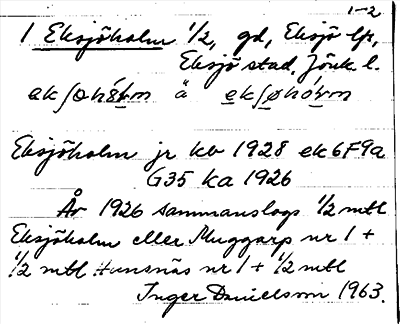 1-2
1 Eksjöholm 1/2, gd, Eksjö lfs,
Eksjö stad, Jönk. l.
ä
Eksjöholm jr kb 1928 ek 6F9a
G35 ka 1926
År 1926 sammanslogs 1/2 mtl
Eksjöholm eller Muggarp nr 1 +
1/2 mtl Hunsnäs nr 1 + 1/2 mtl
Inger Danielsson 1963.